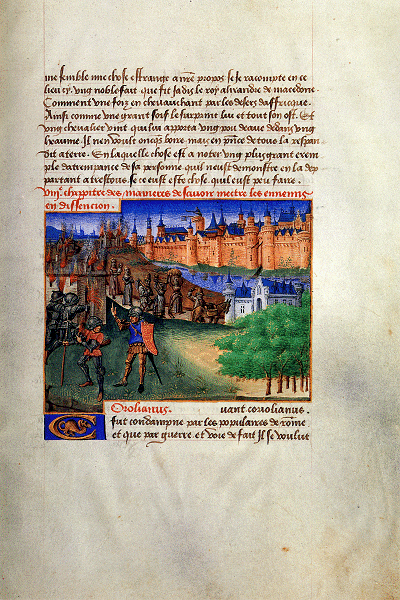 me semble une chose estrange a nr̃e propos se Je racompte en ce
lieu cy. vng noble fait que fit Jadis le roy alixandre de macedone.
Comment vne foiz en chevauchant par les desers daffricque.
Ainsi comme vne grant soif le surprint luy et tout son ost. Et
vng chevalier vint qui luy apporta vng pou deaue dedans vng
heaume. Il nen voult oncq̃s boire. mais en p̃nce de tous la respan
dit a terre. En laquelle chose est a noter vng plus grant exem
ple datrempance de sa personne quil neust demonstre en la dep
partant a trestous. se ce eust este chose. quil eust peu faire.
viijᵉ. chapitre des manieres de savoir mectre les ennemis
en dissencion.
Corolianus. uant corolianus.
fut condampne par les populaires de rome
et que par guerre. et voie de fait Il se voulut